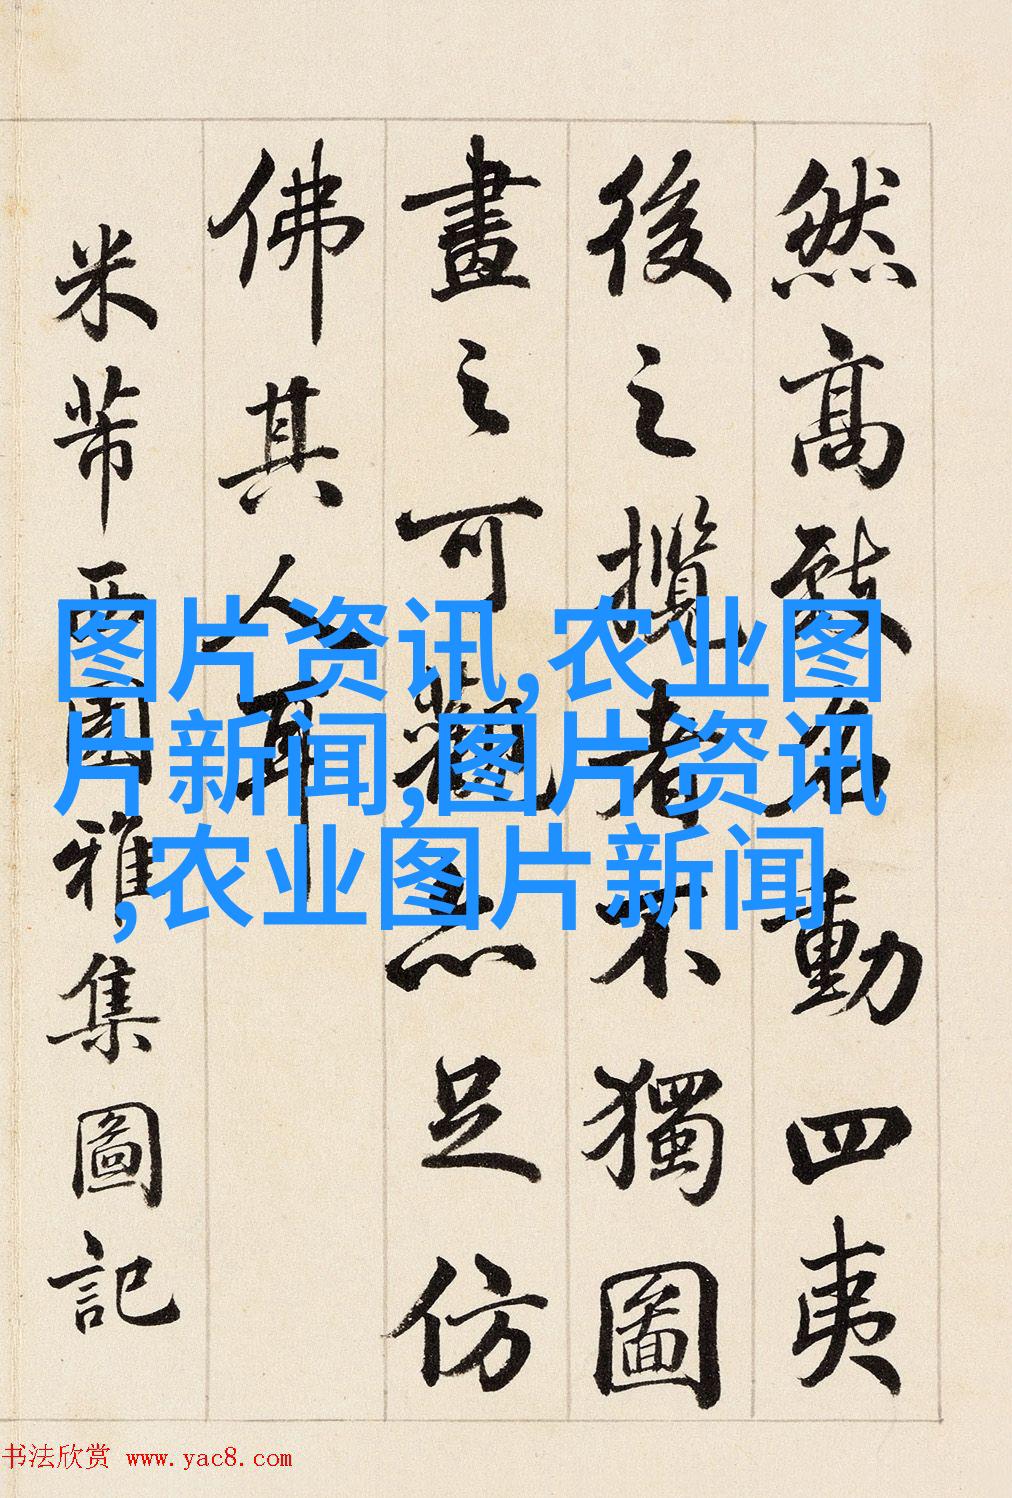 然高致名動四夷
後之攬者不獨圖
畫之可觀亦足仿
佛其人耳
米芾西園雅集圖記
图片资讯,农业图
片新闻,图片资讯
,农业图片新闻
书法欣赏 www.yac8.com